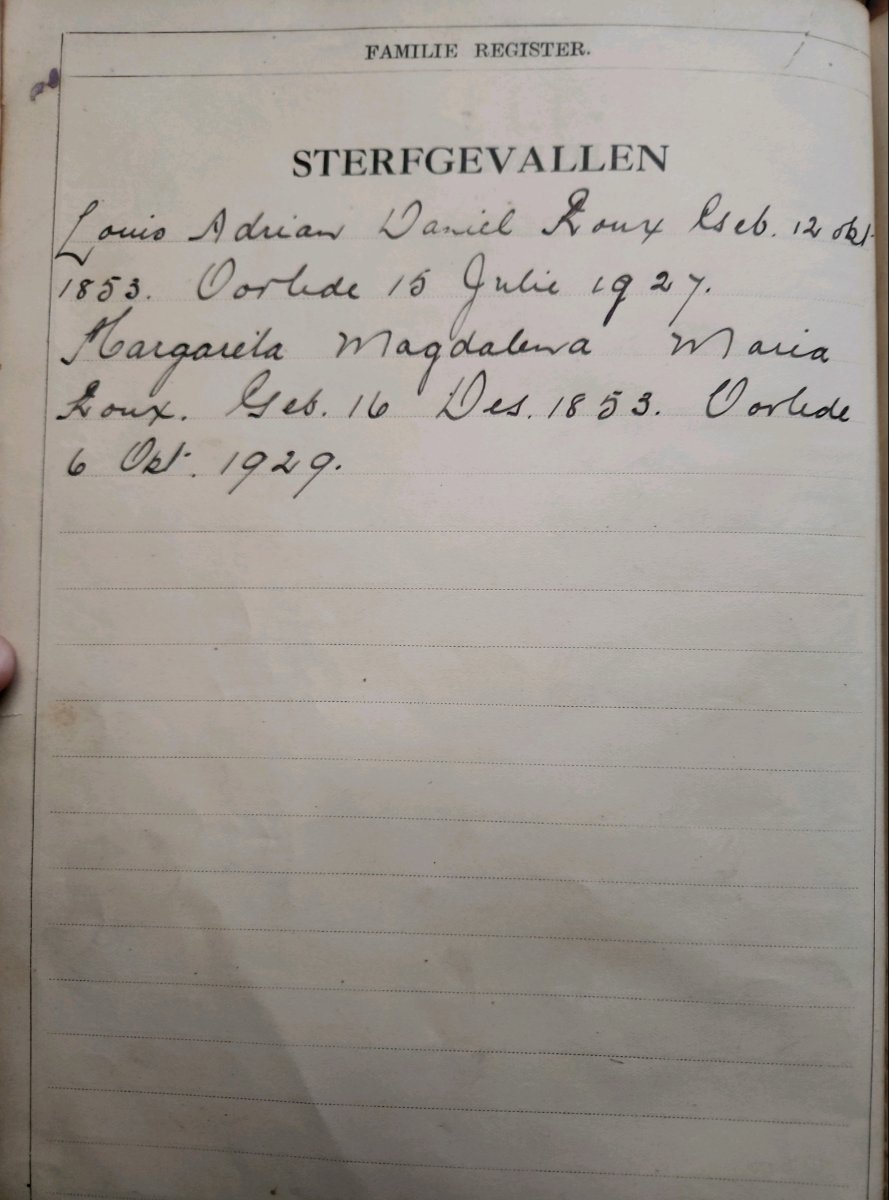 FAMILIE REGISTER.
STERFGEVALLEN
Louis Adrian Daniel Roux Geb. 12 Okt.
1853. Oorlede 15 Julie 1927.
Margarita Magdalena Maria
Roux. Geb. 16 Des. 1853. Oorlede
6 Okt. 1929.